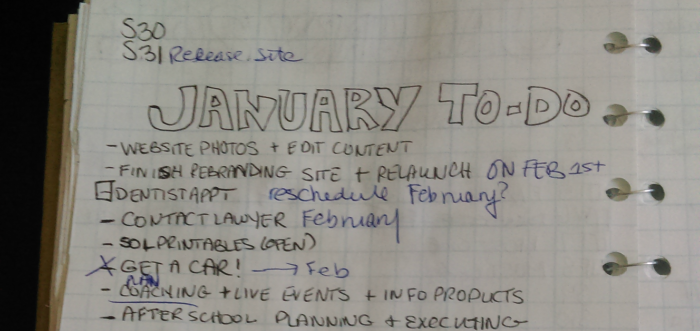 S30
S31 Release Site
JANUARY TO-DO
- WEBSITE PHOTOS + EDIT CONTENT
- FINISH REBRANDING SITE + RELAUNCH ON FEB 1st
DENTIST APPT reschedule February?
- CONTACT LAWYER February
- SOL PRINTABLES (OPEN)
X GET A CAR! → Feb
PLAN
- COACHING + LIVE EVENTS + INFO PRODUCTS
- AFTERSCHOOL PLANNING + EXECUTING